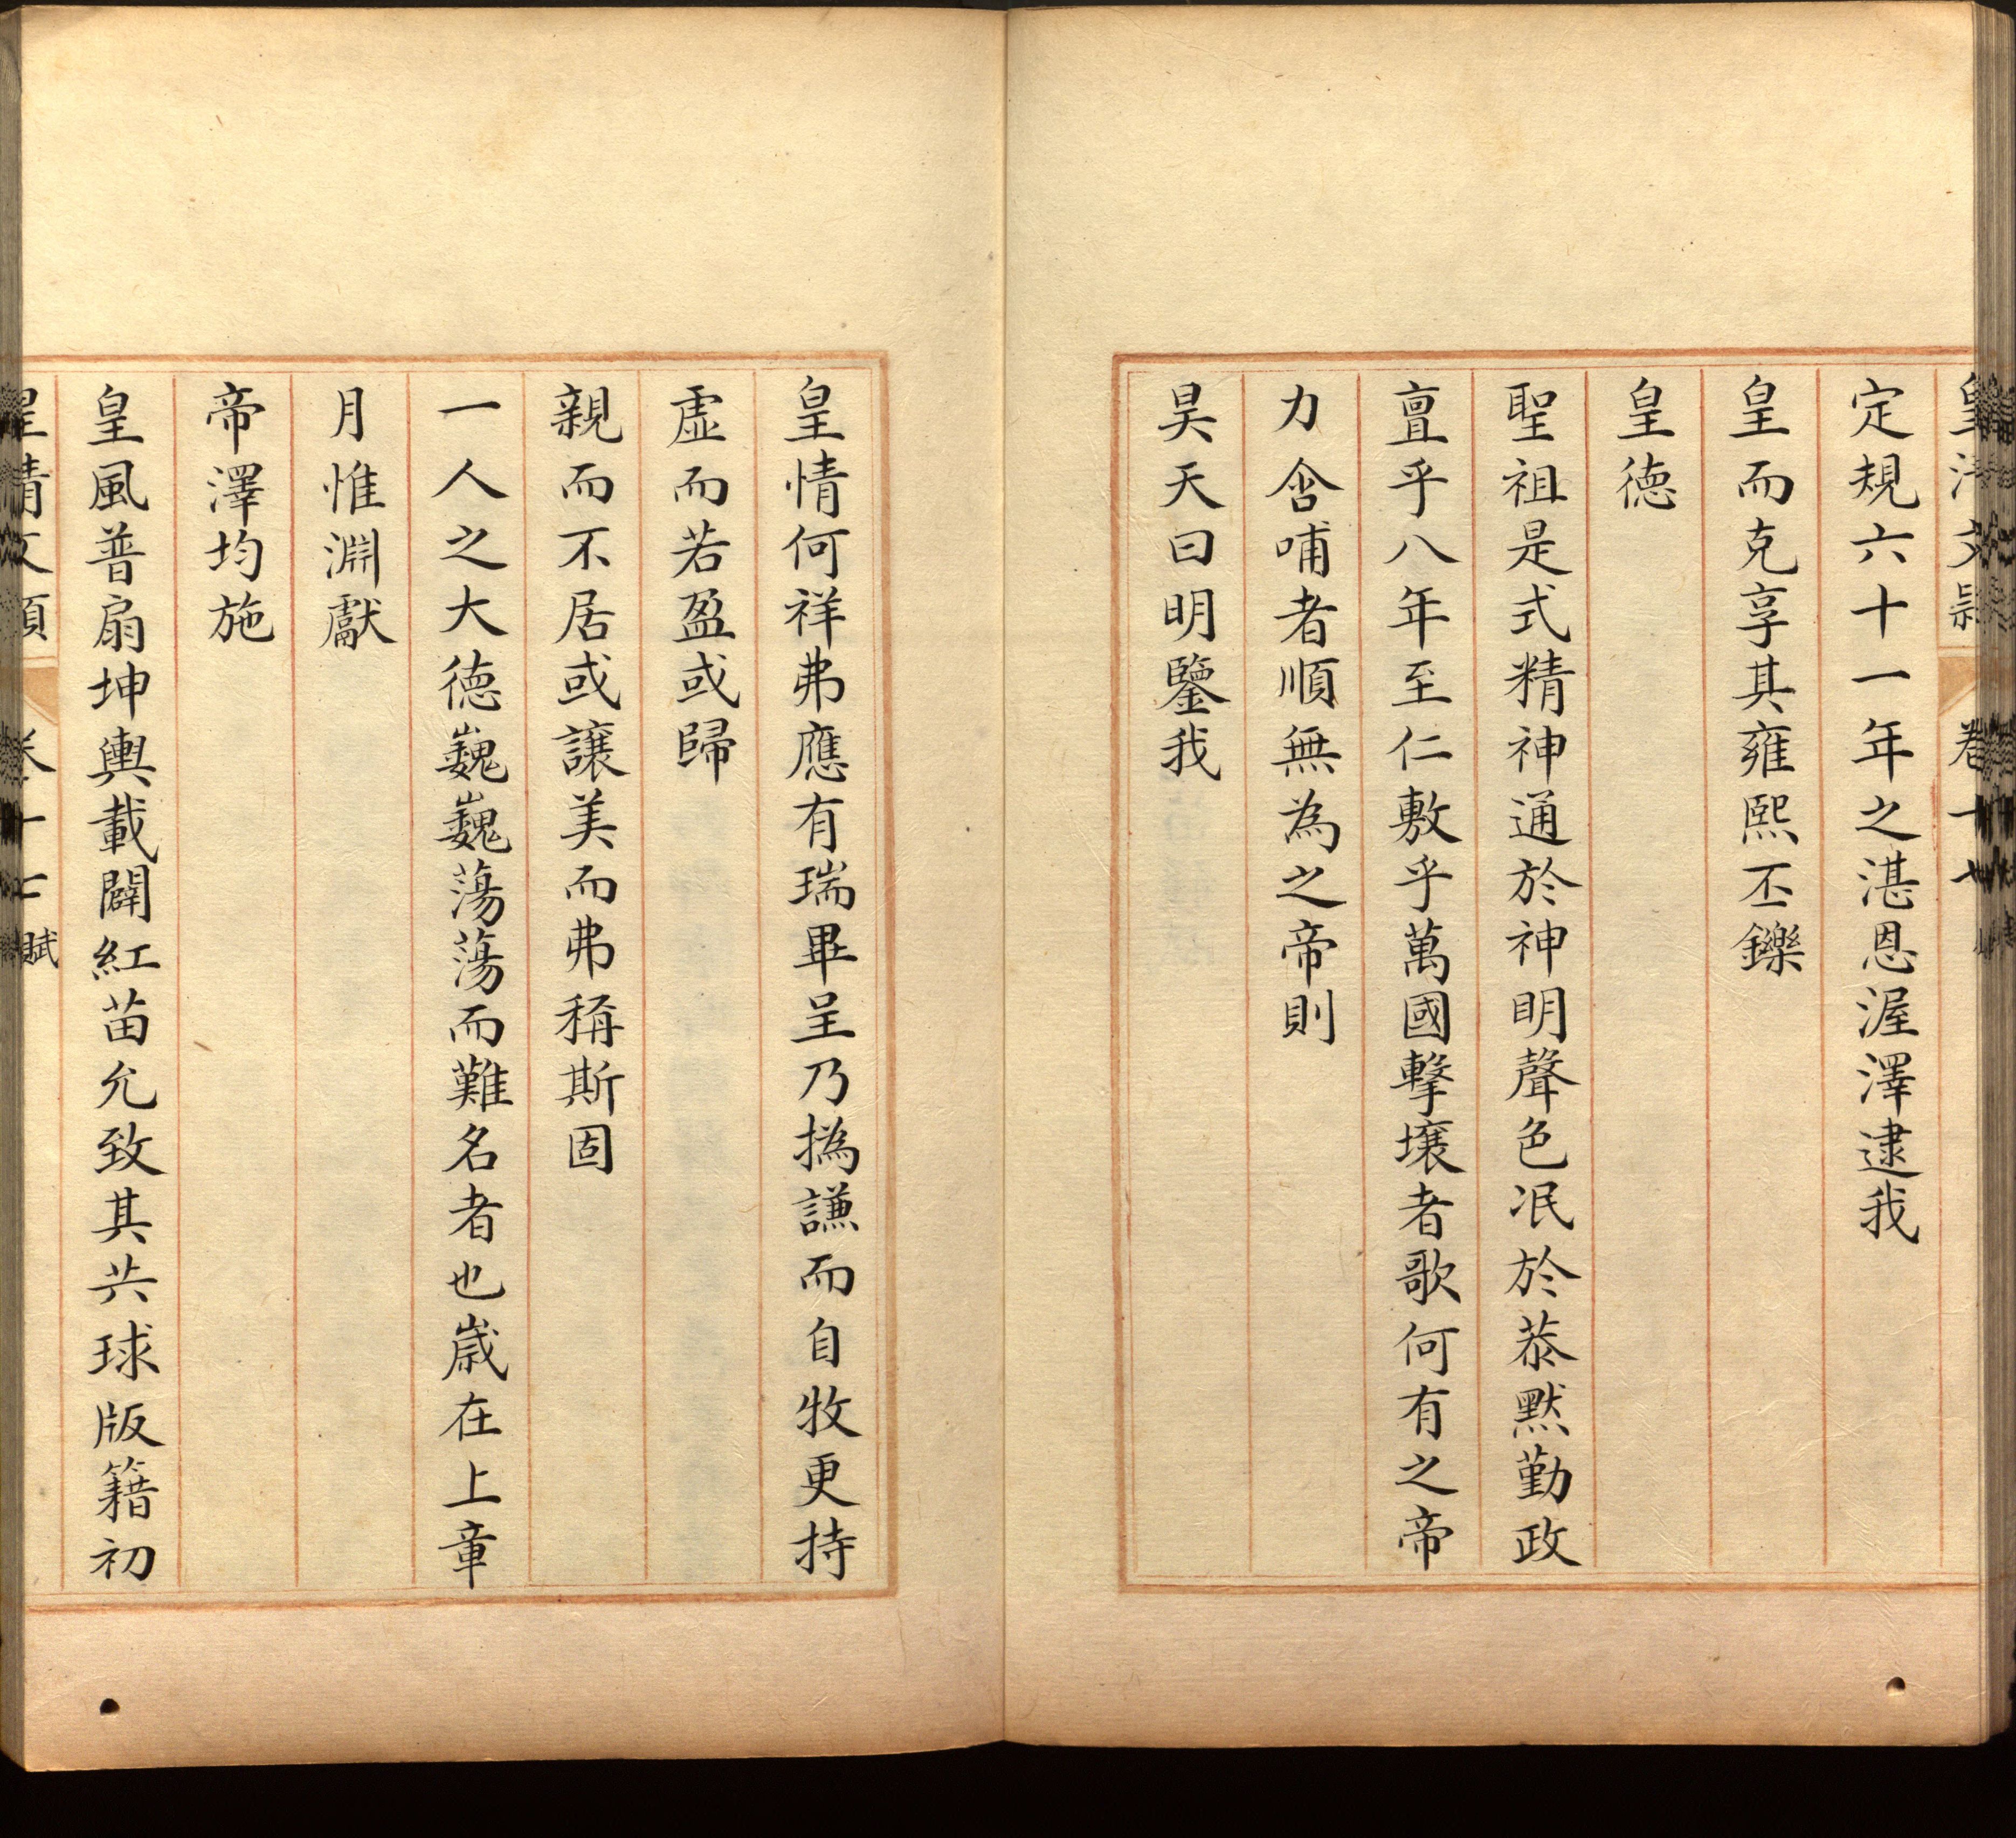 皇清文潁 卷十七
定規六十一年之湛恩渥澤逮我
皇而克享其雍熙丕鑠
皇德
聖祖是式精神通於神明聲色泯於恭默勤政
亶乎八年至仁敷乎萬國擊壤者歌何有之帝
力含哺者順無為之帝則
昊天曰明鑒我
皇情何祥弗應有瑞畢呈乃撝謙而自牧更持
虛而若盈或歸
親而不居或讓美而弗稱斯固
一人之大德巍巍蕩蕩而難名者也歲在上章
月惟淵獻
帝澤均施
皇風普扇坤輿載闢紅苗允致其共球版籍初
皇清文潁 卷十七 賦